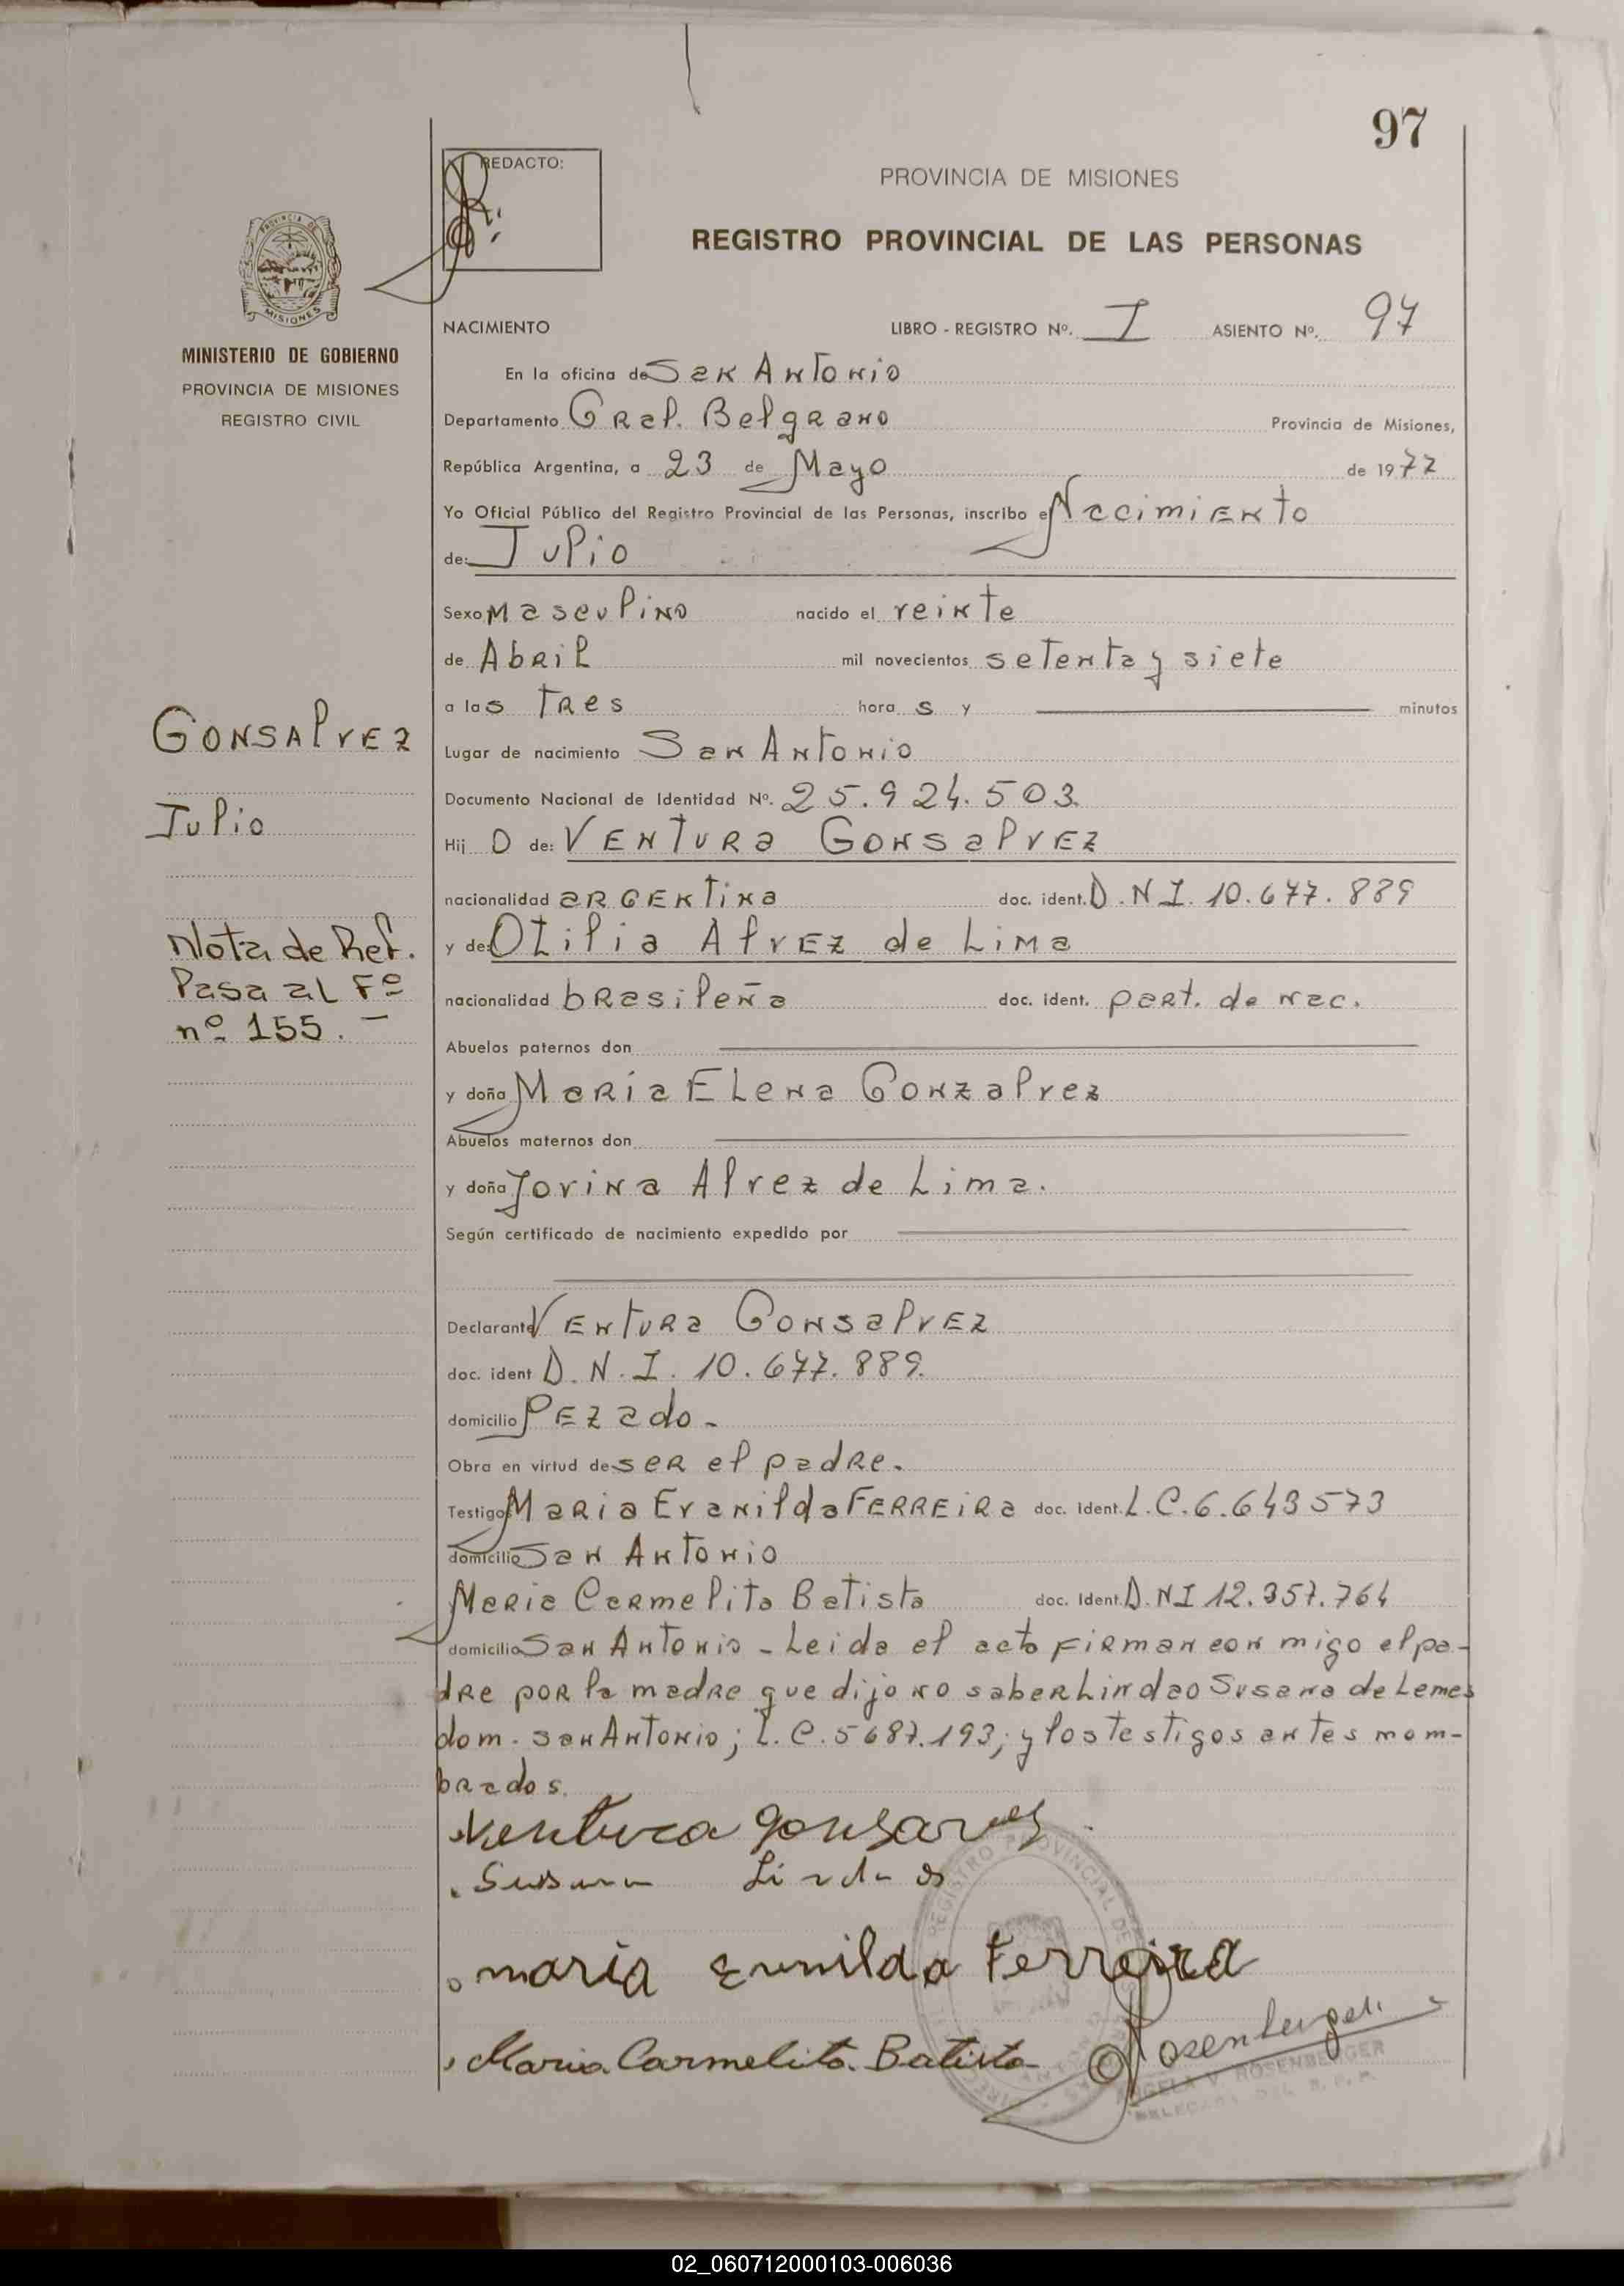 97
REDACTO:
PROVINCIA DE MISIONES
REGISTRO PROVINCIAL DE LAS PERSONAS
PROVINCIA DE
MISIONES
MINISTERIO DE GOBIERNO
PROVINCIA DE MISIONES
REGISTRO CIVIL
NACIMIENTO LIBRO - REGISTRO Nº. I ASIENTO Nº. 97
En la oficina de San Antonio
Departamento Gral. Belgrano Provincia de Misiones,
República Argentina, a 23 de Mayo de 1977
Yo Oficial Público del Registro Provincial de las Personas, inscribo el Nacimiento
de: Julio
Sexo Masculino nacido el veinte
de Abril mil novecientos setenta y siete
a las tres hora s y minutos
GONSALVEZ
Julio
Nota de Ref.
Pasa al Fº
nº 155. -
Lugar de nacimiento San Antonio
Documento Nacional de Identidad Nº. 25.924.503.
Hij o de: Ventura Gonsalvez
nacionalidad argentina doc. ident. D.N.I. 10.677.889
y de: Otilia Alvez de Lima
nacionalidad brasileña doc. ident. part. de nac.
Abuelos paternos don
y doña María Elena Gonzalvez
Abuelos maternos don
y doña Jovina Alvez de Lima.
Según certificado de nacimiento expedido por
Declarante Ventura Gonsalvez
doc. ident D.N.I. 10.677.889.
domicilio Pezado -
Obra en virtud de ser el padre.
Testigos Maria Evanilda Ferreira doc. ident. L.C. 6.643573
domicilio San Antonio
Maria Carmelita Batista doc. ident. D.NI 12.357.764
domicilio San Antonio - Leida el acto firman con migo el pa-
dre por la madre que dijo no saber Lindao Susana de Lemes
dom. San Antonio; L.C. 5687.193; y los testigos antes nom-
brados.
Ventura Gonsarves
Susana Lindao
maria Evanilda Ferreira
Maria Carmelita Batista
Rosenberger
REGISTRO PROVINCIAL DE
ANGELA V. ROSENBERGER
DELEGADA DEL R.P.P.
02_060712000103-006036